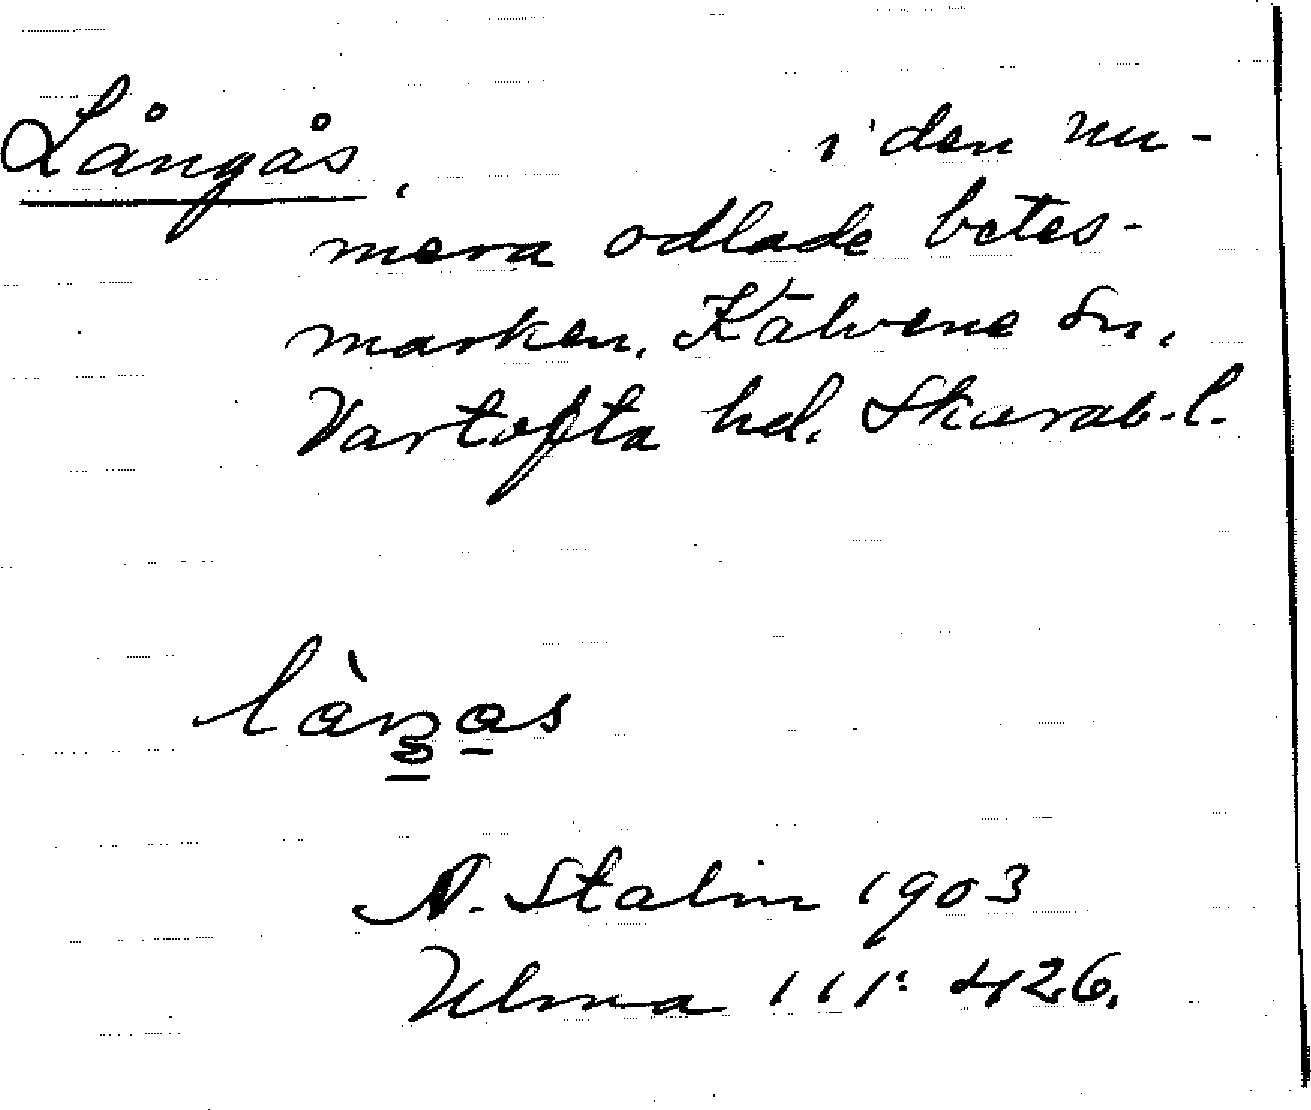 Långås, i den nu-
mera odlade betes-
marken. Kälvene sn.
Vartofta hd. Skarab.l.
A. Stalin 1903
Ulma 111:426.